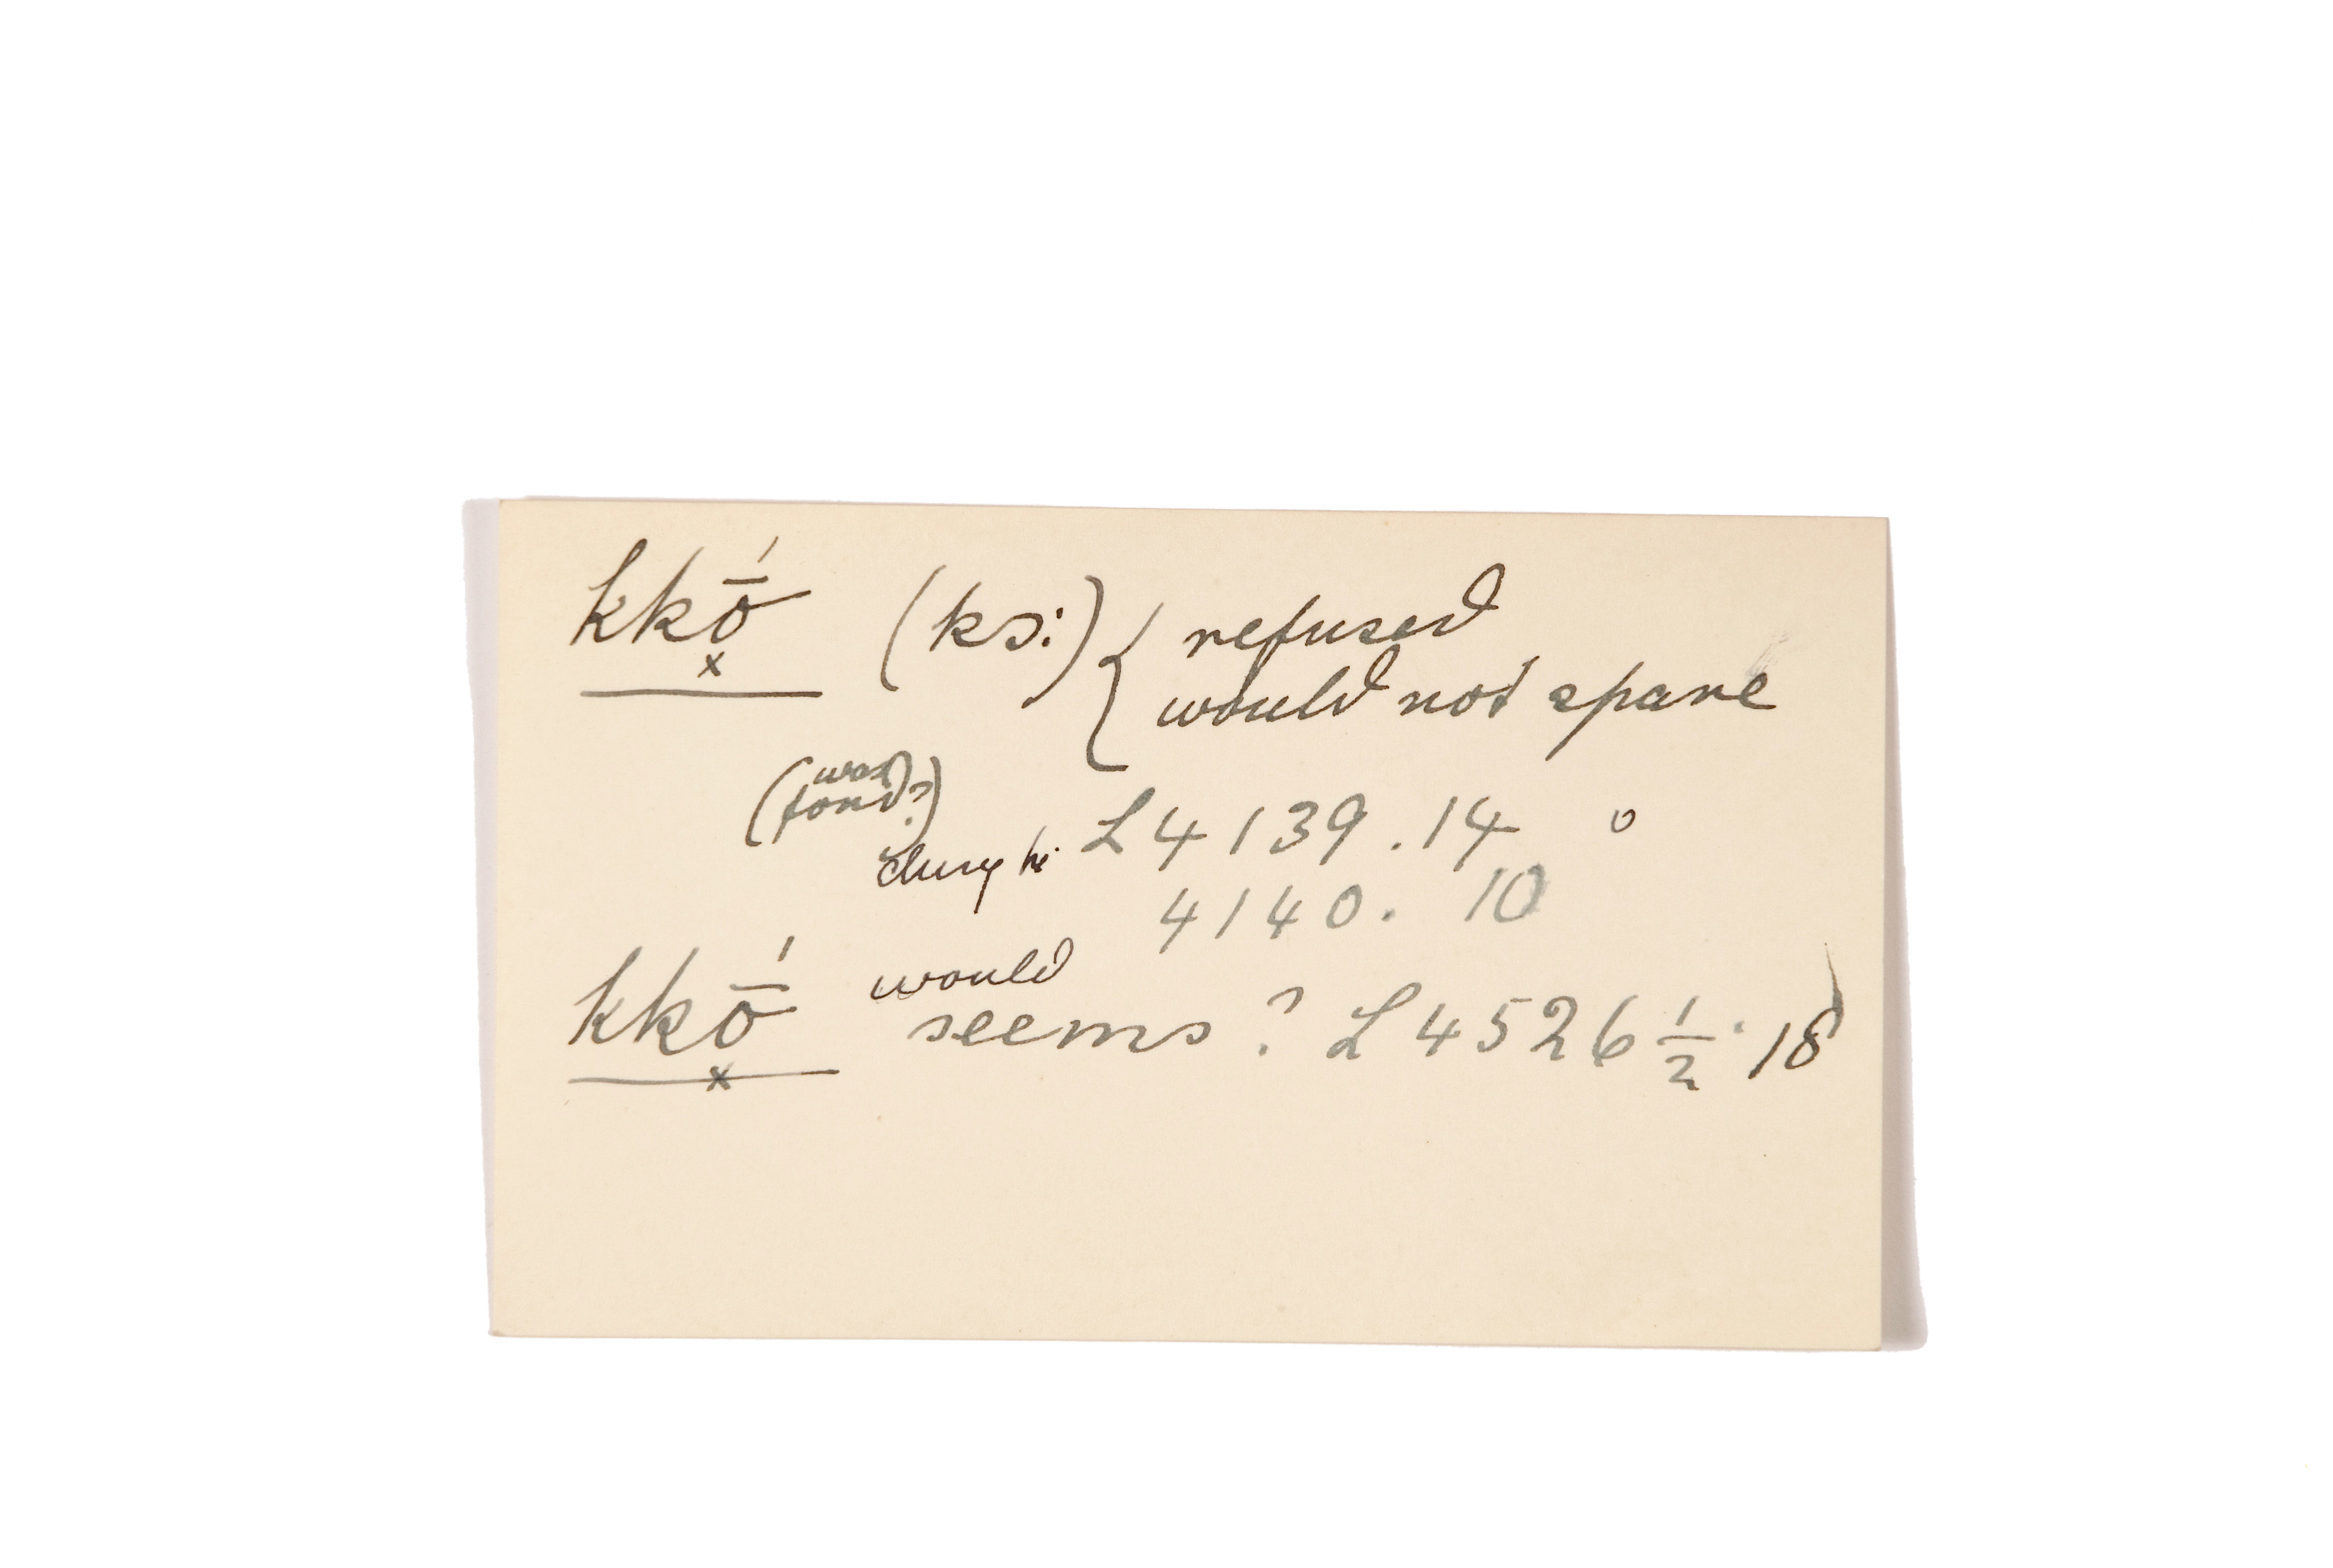 kkō̱̽́ (ks:) { refused
would not spare
(was fond?)
L 4139.14 o
4140. 10
kkō̱̽́ would
seems? L 4526 1/2. 18